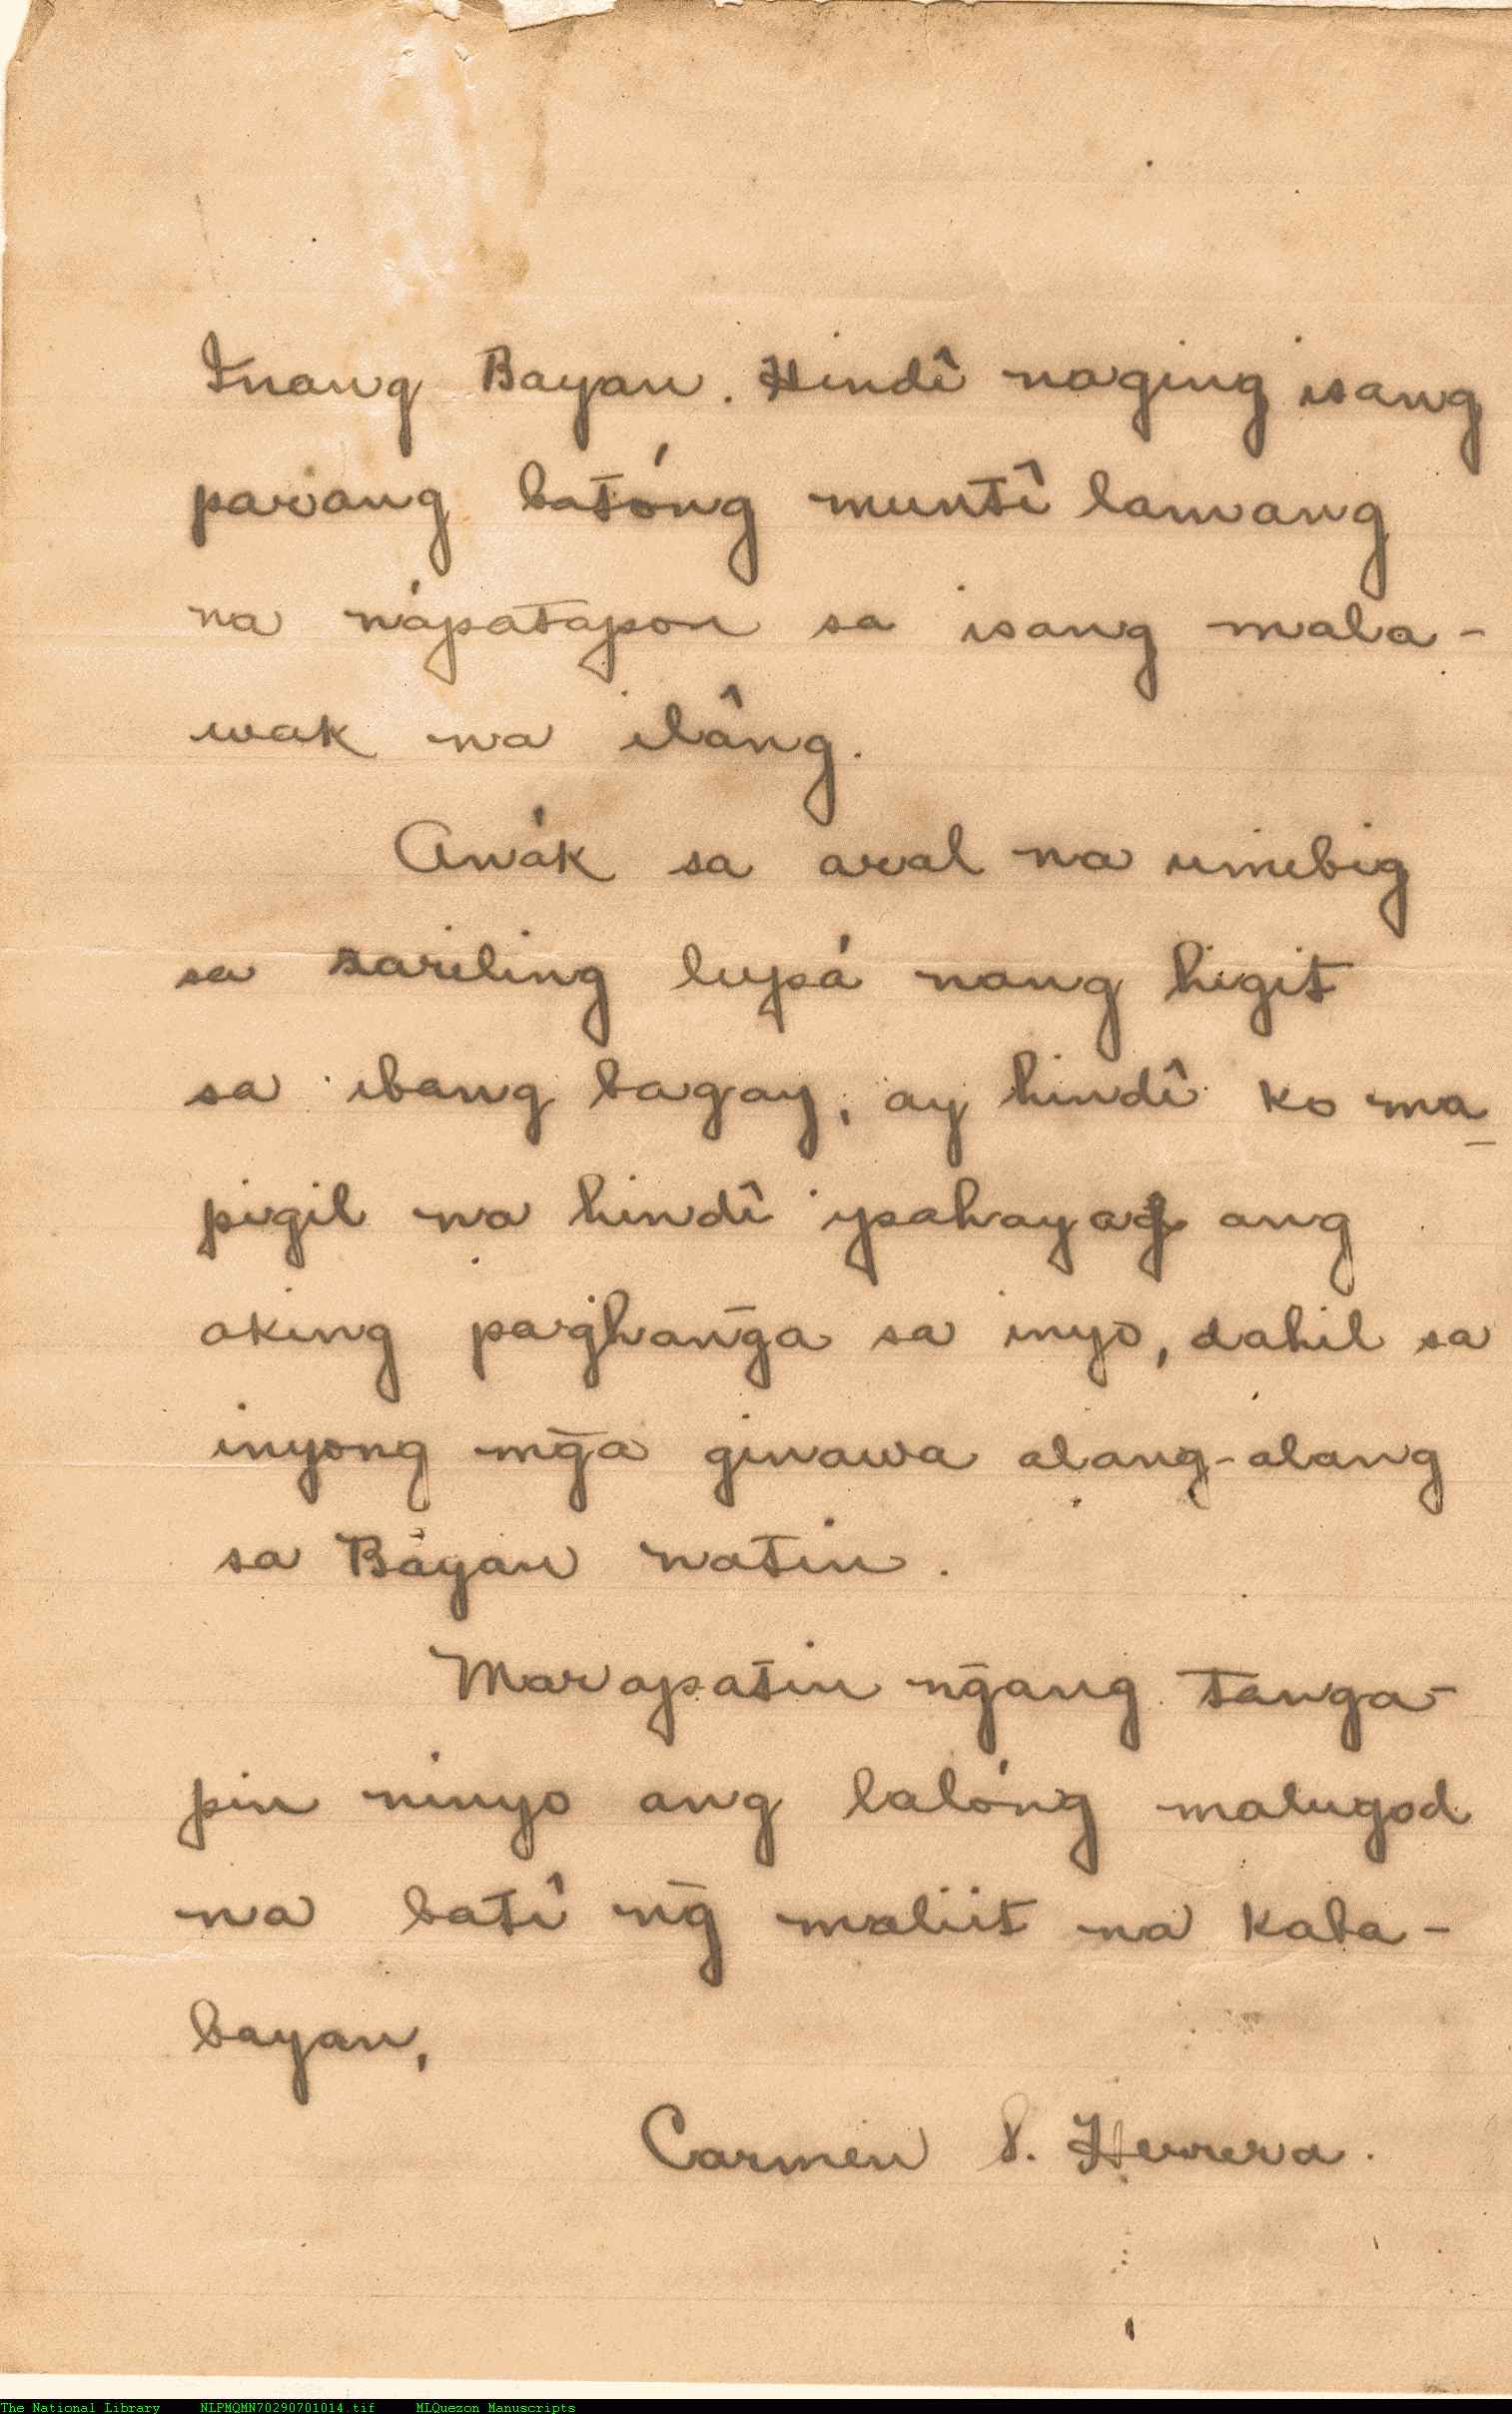 Inang Bayan. Hindî naging isang
parang batóng muntî lamang
na nápatapon sa isang mala-
wak na ilâng.
Anák sa aral na umibig
sa sariling lupá nang higit
sa ibang bagay, ay hindî ko ma-
pigil na hindî ipahayag ang
aking paghan̄ga sa inyo, dahil sa
inyong mḡa ginawa alang-alang
sa Bayan natin.
Marapatin nḡang tanga-
pin ninyo ang lalóng malugod
na batî nḡ maliit na kaba-
bayan,
Carmen P. Herrera.
The National Library NLPMQMN70290701014.tif MLQuezon Manuscripts